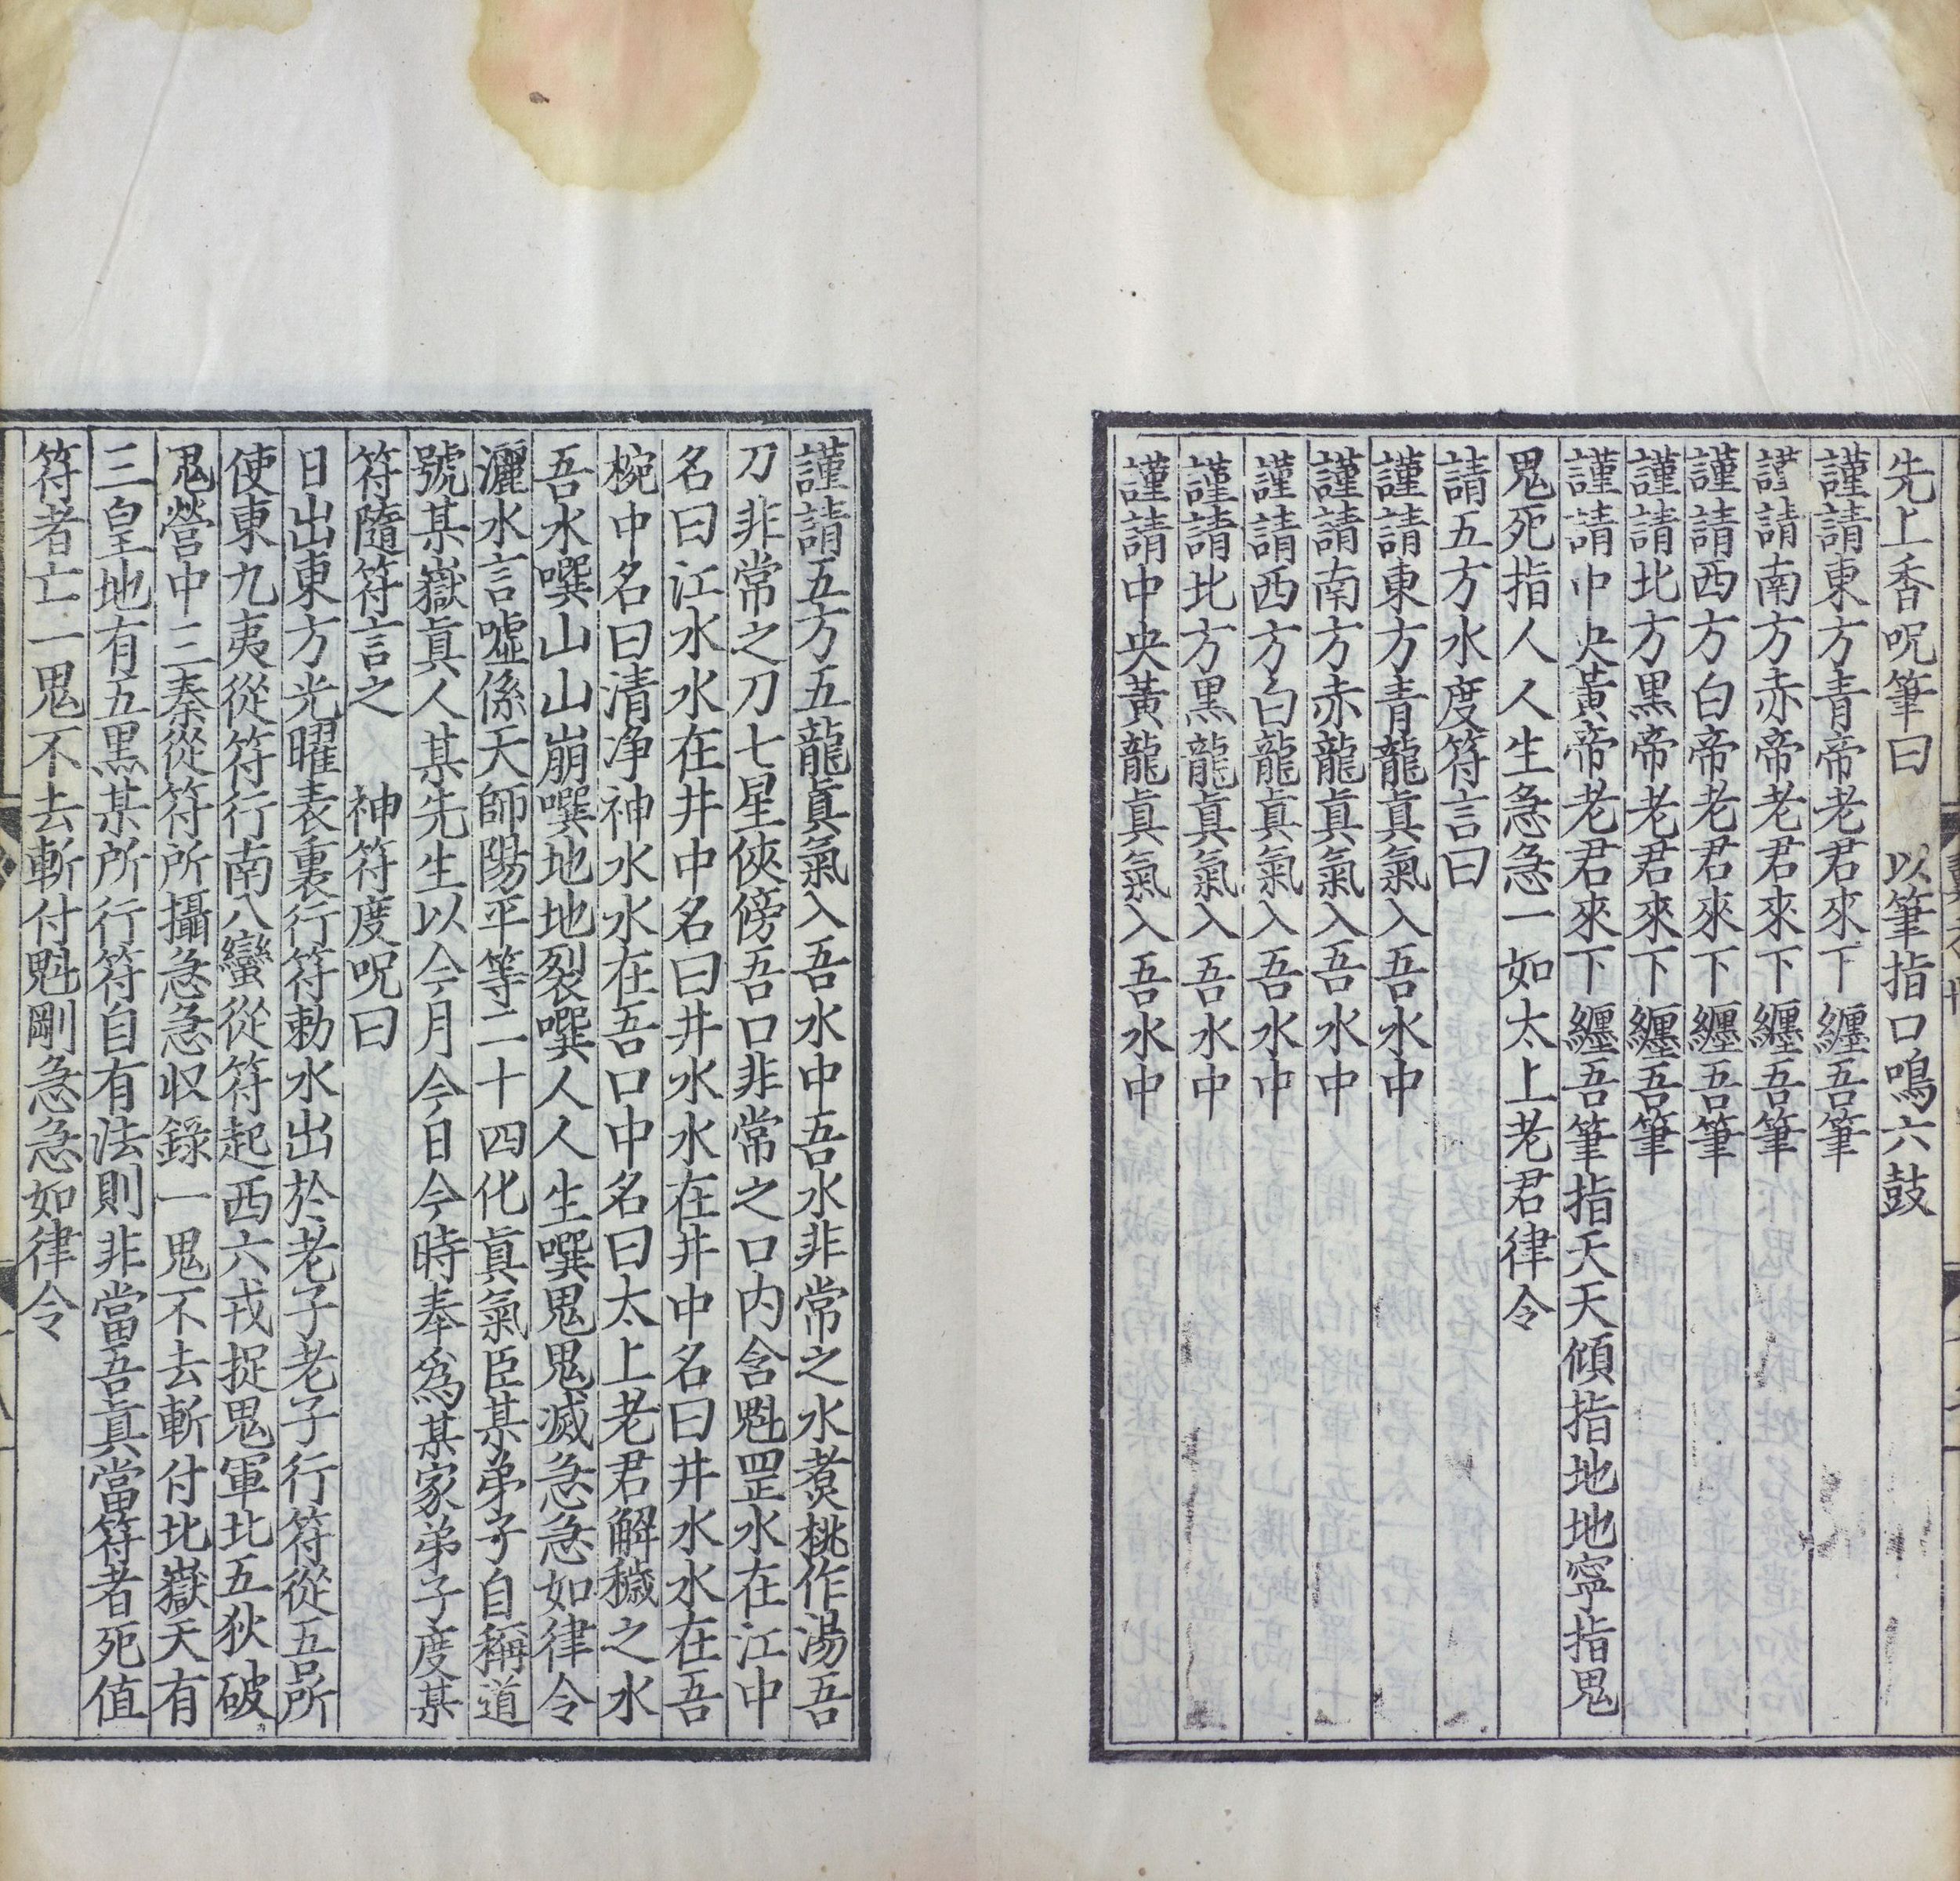 先上香呪筆曰　以筆指口鳴六鼓
謹請東方青帝老君來下纒吾筆
謹請南方赤帝老君來下纒吾筆
謹請西方白帝老君來下纒吾筆
謹請北方黑帝老君來下纒吾筆
謹請中央黃帝老君來下纒吾筆指天天傾指地地寧指鬼
鬼死指人人生急急一如太上老君律令
請五方水度符言曰
謹請東方青龍真氣入吾水中
謹請南方赤龍真氣入吾水中
謹請西方白龍真氣入吾水中
謹請北方黑龍真氣入吾水中
謹請中央黃龍真氣入吾水中
謹請五方五龍真氣入吾水中吾水非常之水煑桃作湯吾
刀非常之刀七星俠傍吾口非常之口内含魁罡水在江中
名曰江水水在井中名曰井水水在井中名曰井水水在吾
椀中名曰清净神水水在吾口中名曰太上老君解穢之水
吾水噀山山崩噀地地裂噀人人生噀鬼鬼滅急急如律令
灑水言嘘係天師陽平等二十四化真氣臣某弟子自稱道
號某嶽真人某先生以今月今日今時奉為某家弟子度某
符隨符言之　神符度呪曰
日出東方光曜表裏行符勅水出於老子老子行符從吾所
使東九夷從符行南八蠻從符起西六戎捉鬼軍北五狄破
鬼營中三秦從符所攝急急収錄一鬼不去斬付北嶽天有
三皇地有五黑某所行符自有法則非當吾真當符者死值
符者亡一鬼不去斬付魁剛急急如律令